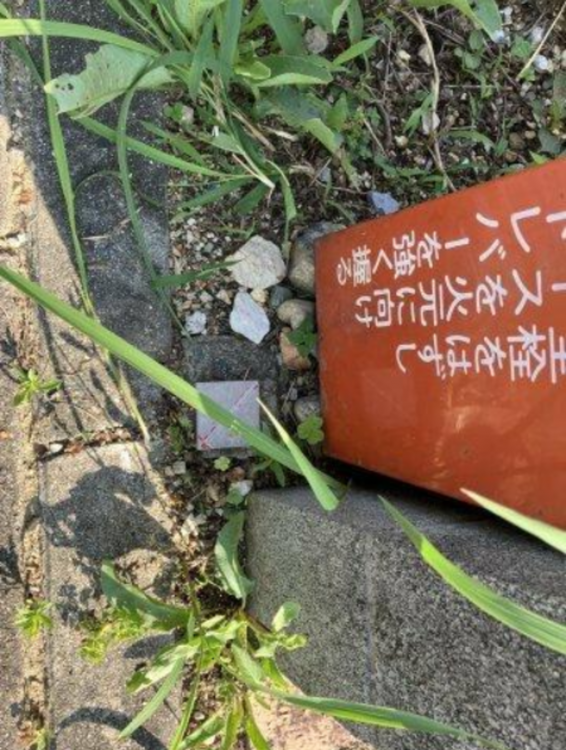 全栓をはずし
ースを火元に向け
レバーを強く握る